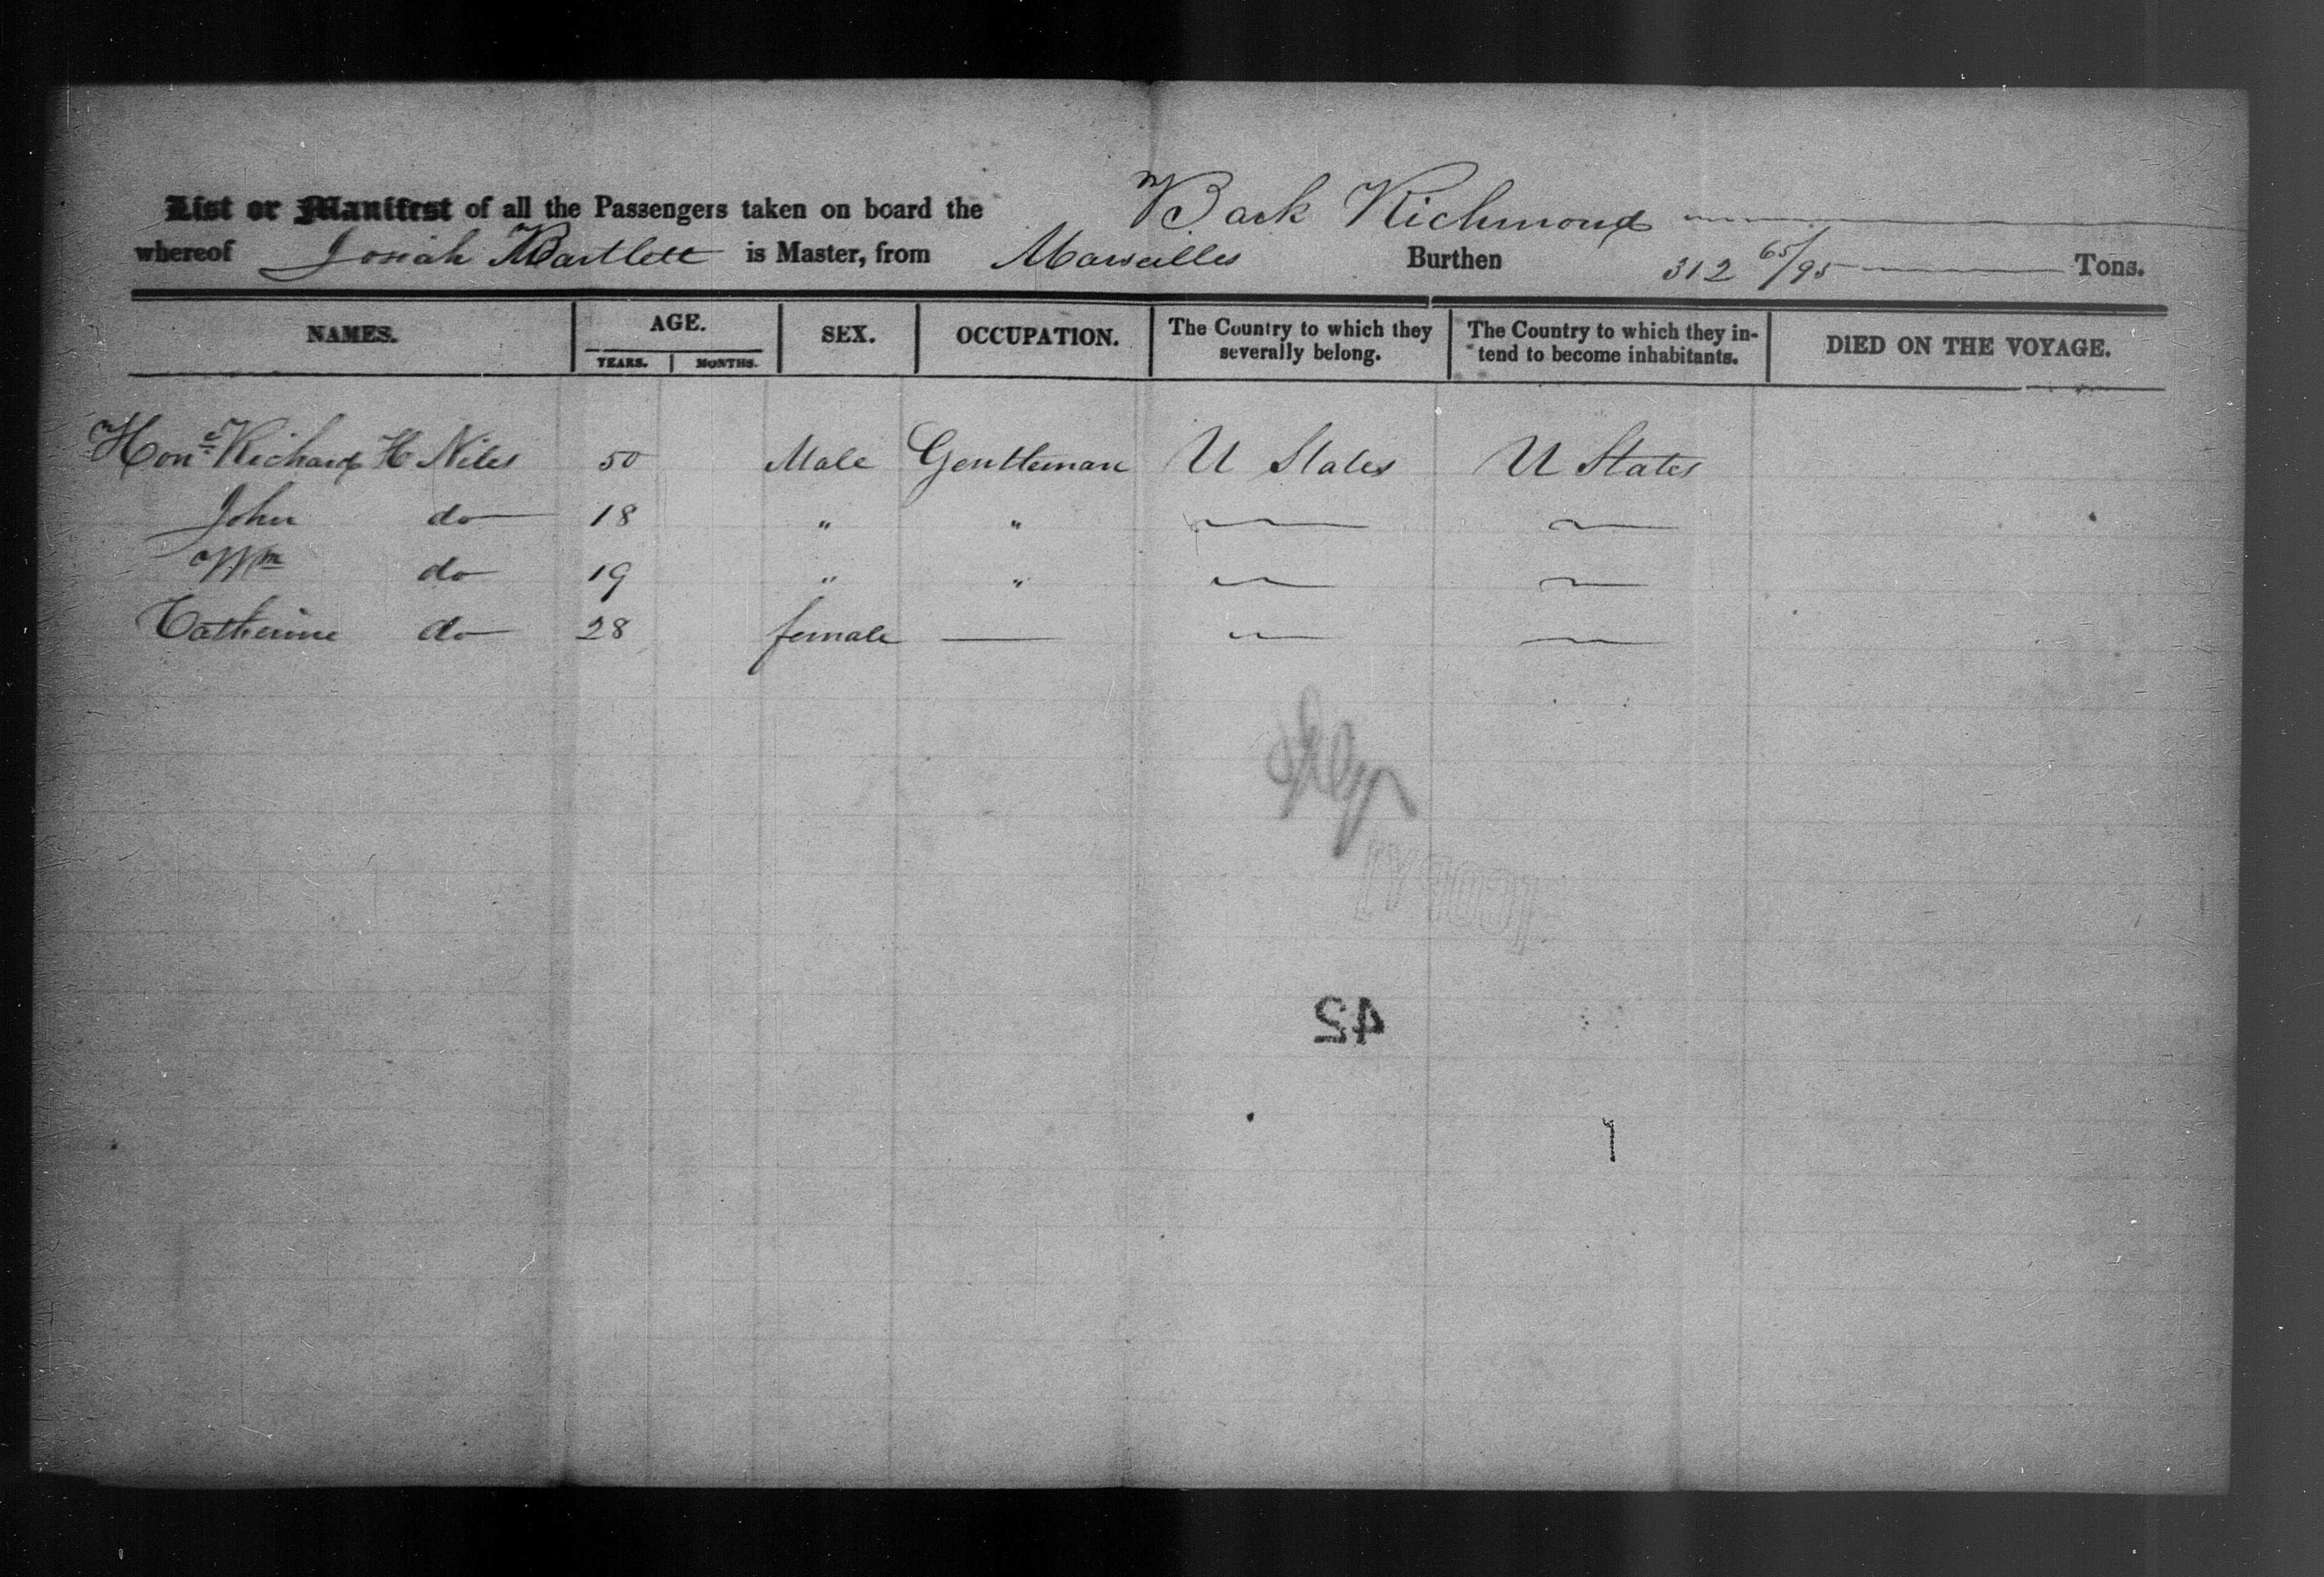 List or Manifest of all the Passengers taken on board the Bark Richmond
whereof Josiah Bartlett is Master, from Marseilles Burthen 312 65/95 Tons.
NAMES. AGE. SEX. OCCUPATION. The Country to which they severally belong. The Country to which they intend to become inhabitants. DIED ON THE VOYAGE.
YEARS. MONTHS.
Hone Richard H Niles 50 Male Gentleman U States U States
John do 18 " "
Wm do 19 " "
Catherine do 28 female
COPY
42
1